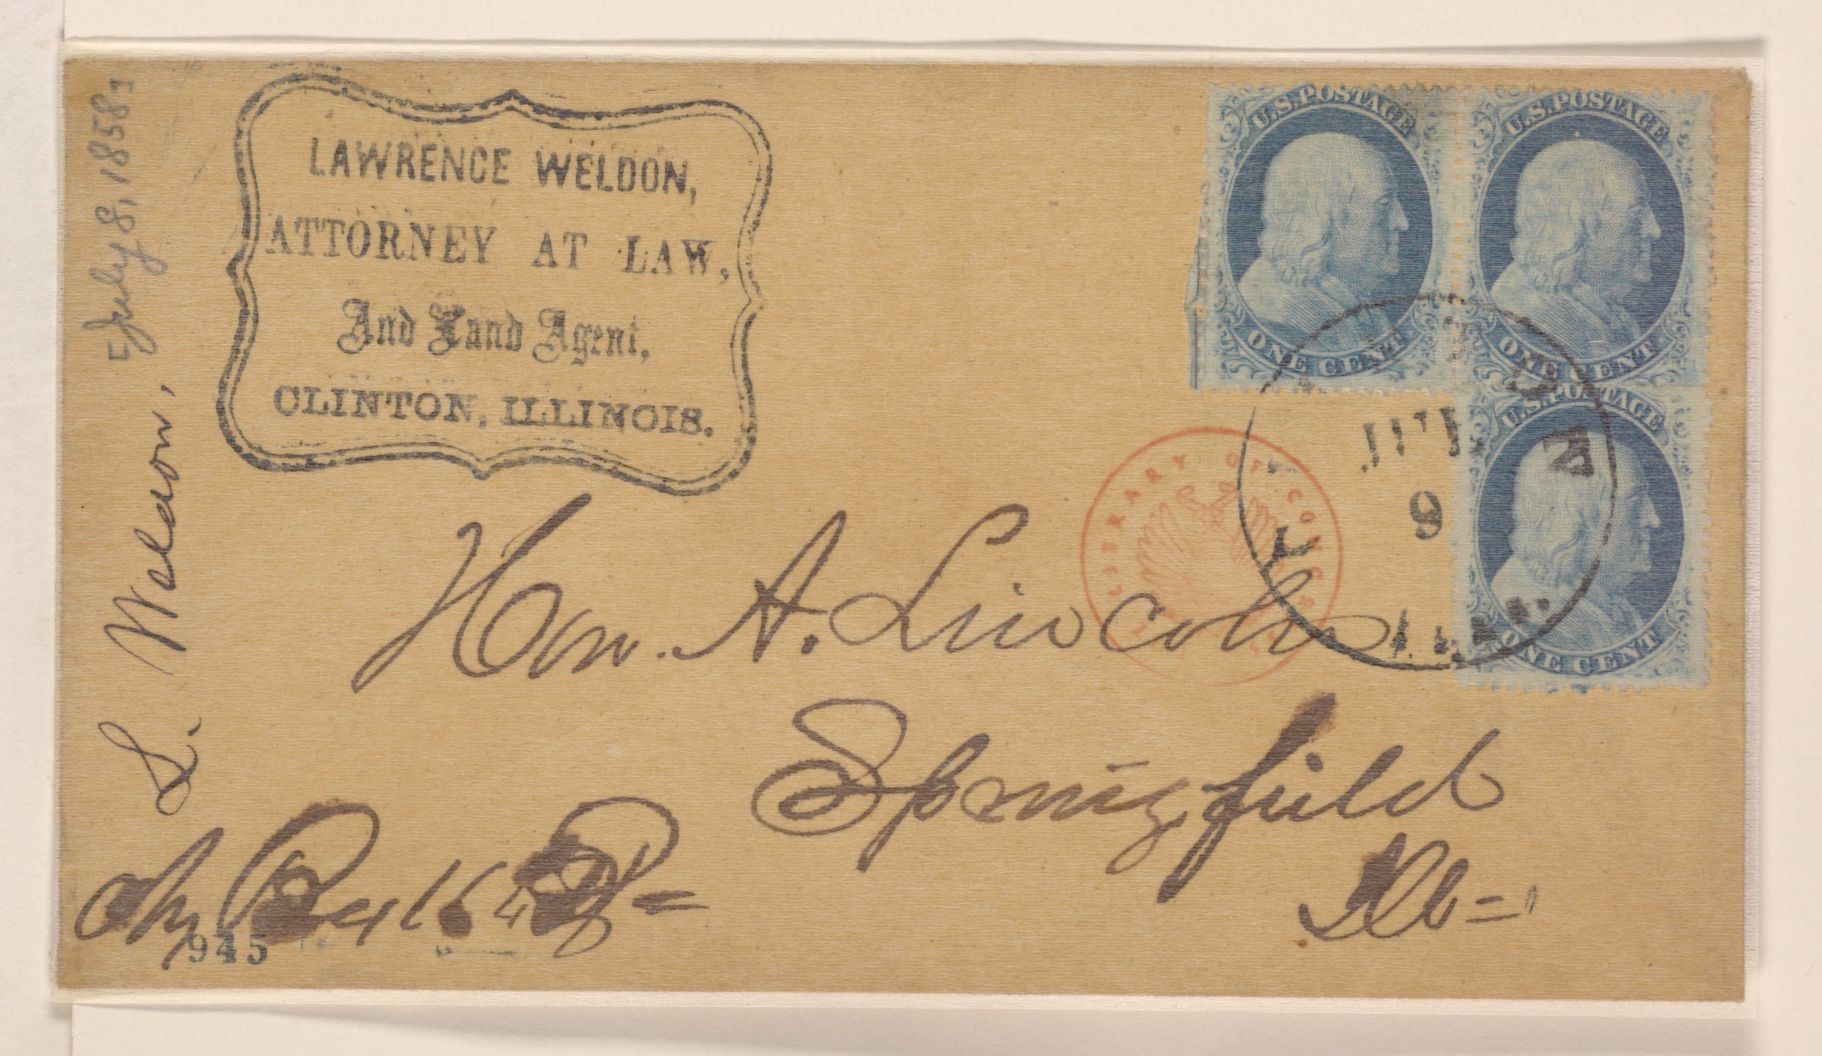 LAWRENCE WELDON,
ATTORNEY AT LAW,
And Land Agent,
CLINTON, ILLINOIS.
U.S. POSTAGE
ONE CENT
U.S. POSTAGE
ONE CENT
U.S. POSTAGE
ONE CENT
JUL
9
LIBRARY OF CONGRESS
Hon. A. Lincoln
Springfield
Ills =
L. Weldon,
[July 8, 1858]
945